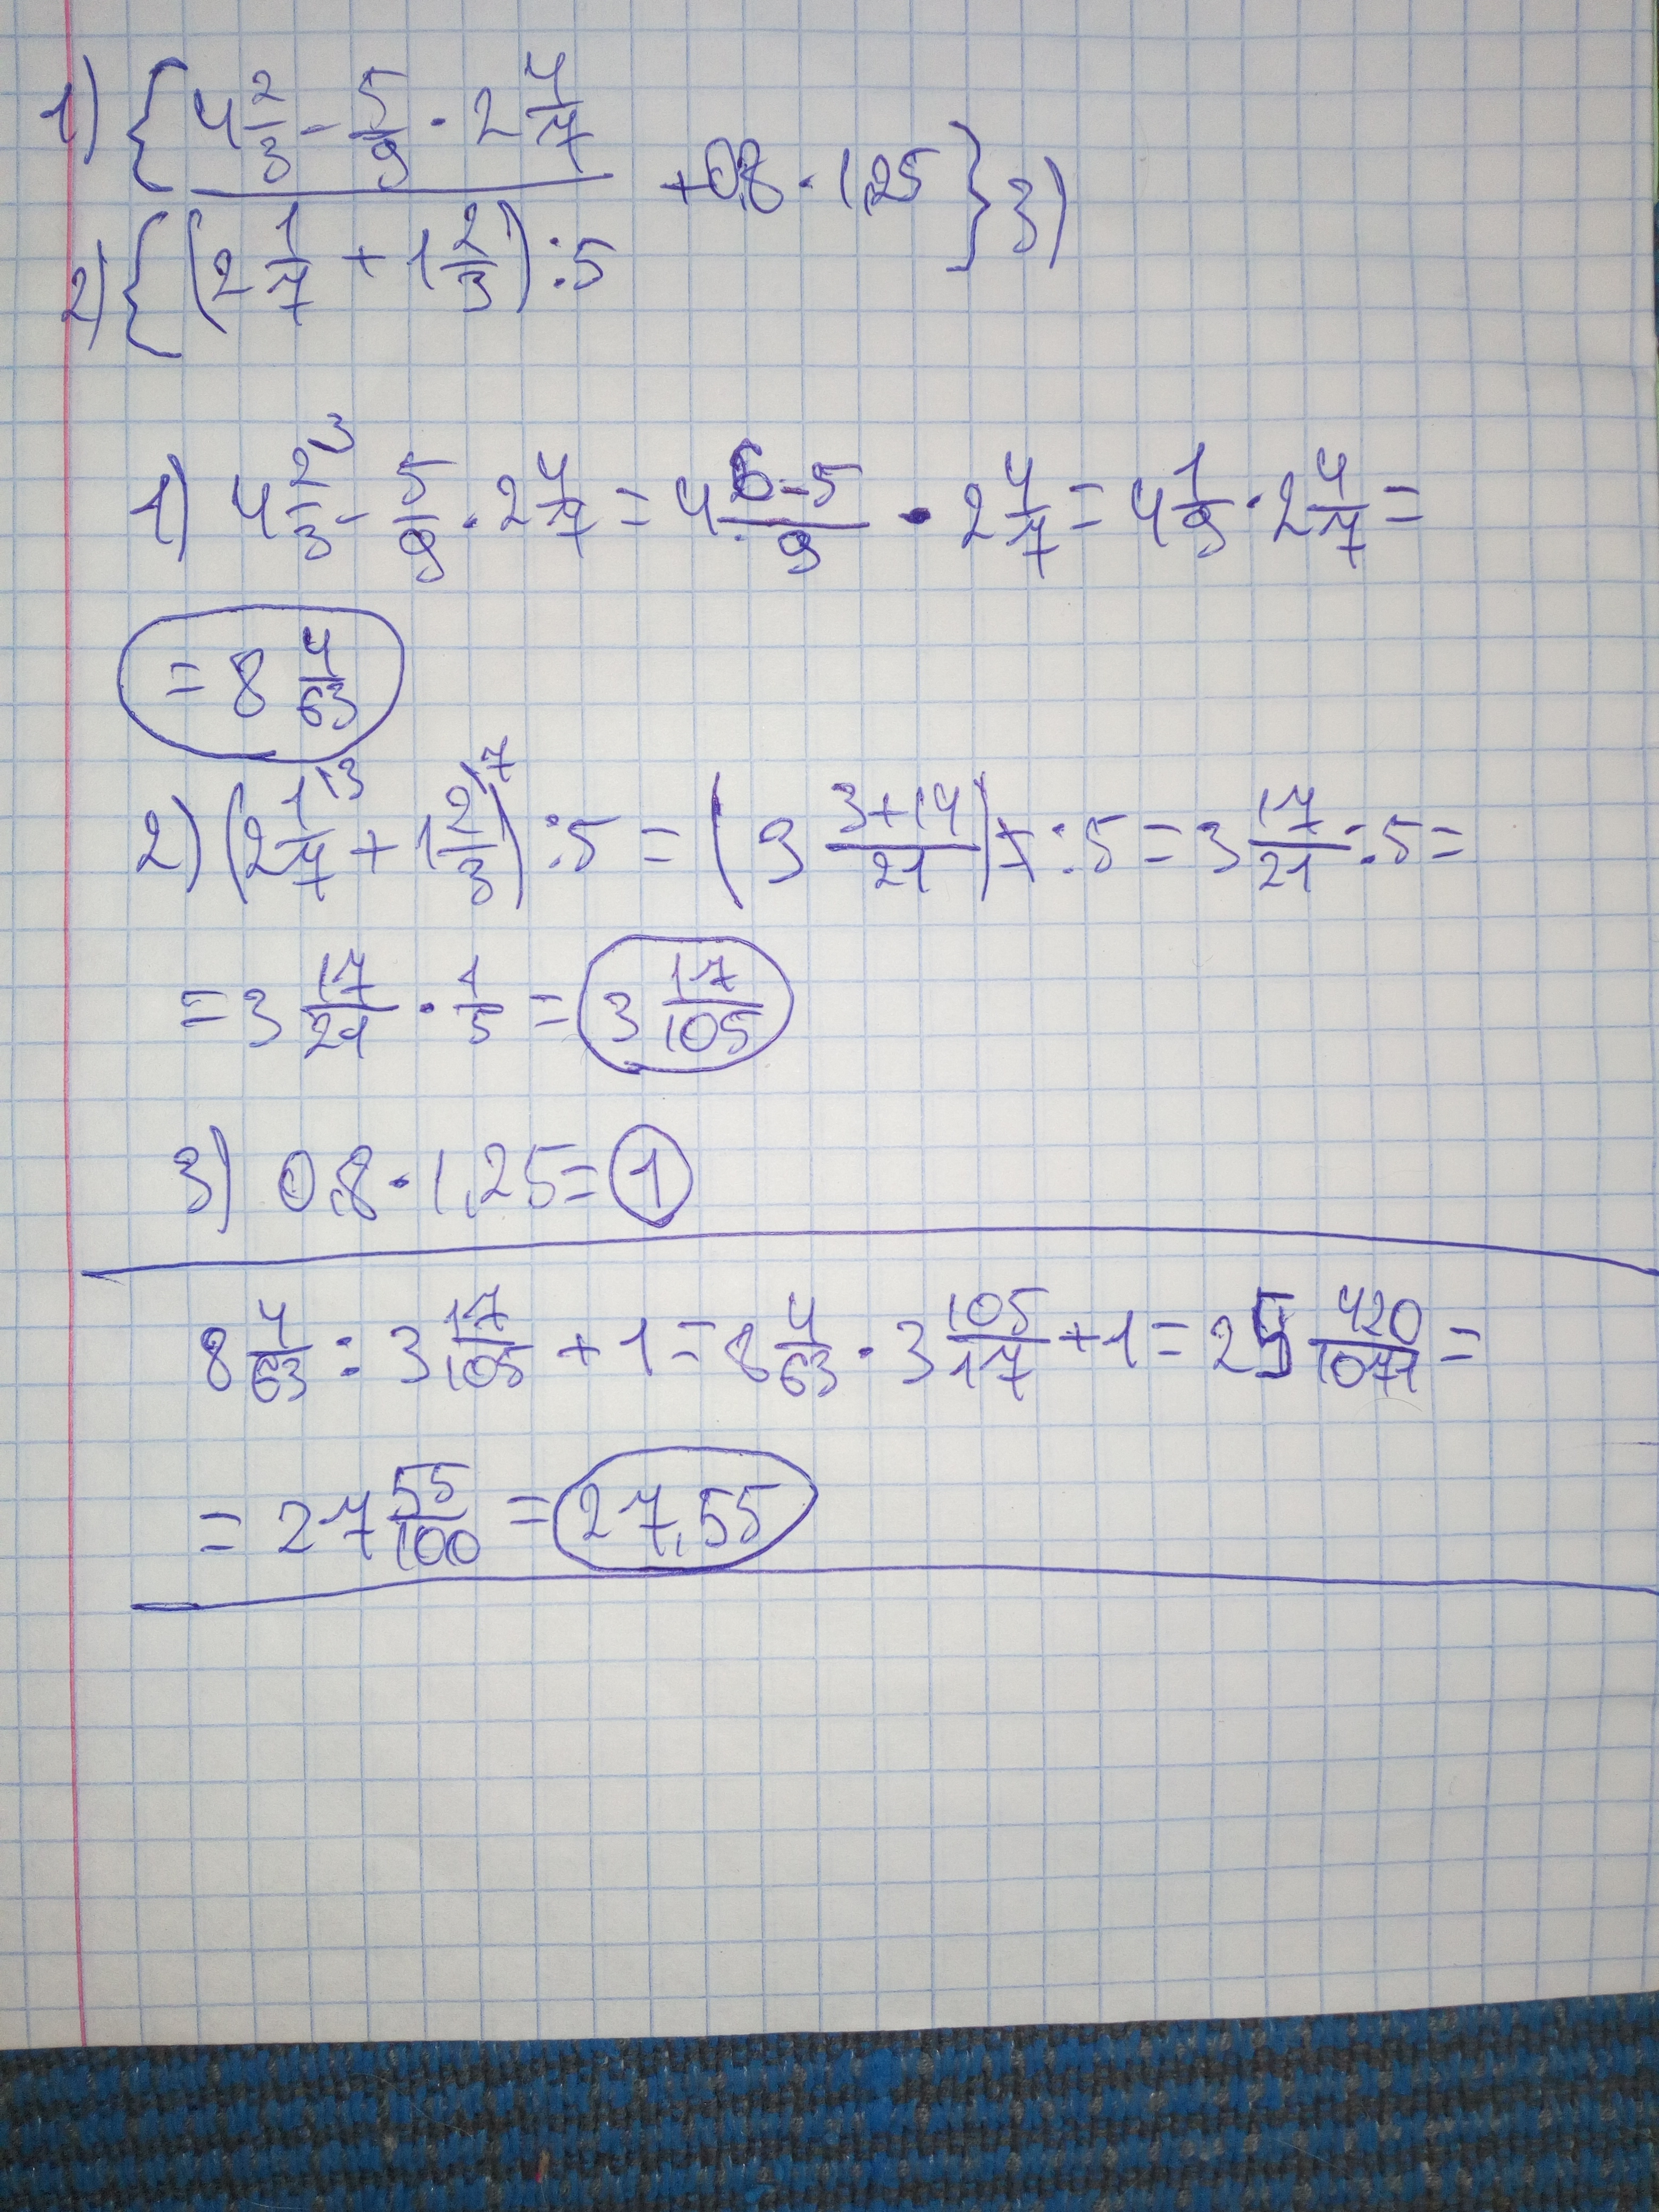 1) { 4 2/3 - 5/9 · 2 4/7
+ 0,8 · 1,25 } 3)
2) { (2 1/7 + 1 2/3) : 5
1) 4 2/3 ⁾³ - 5/9 · 2 4/7 = 4 6-5/9 · 2 4/7 = 4 1/9 · 2 4/7 =
= 8 4/63
2) (2 1/7 ⁾³ + 1 2/3 ⁾⁷) : 5 = (3 3+14/21) : 5 = 3 17/21 : 5 =
= 3 17/21 · 1/5 = 3 17/105
3) 0,8 · 1,25 = 1
8 4/63 : 3 17/105 + 1 = 8 4/63 · 3 105/17 + 1 = 25 420/1071 =
= 27 55/100 = 27,55